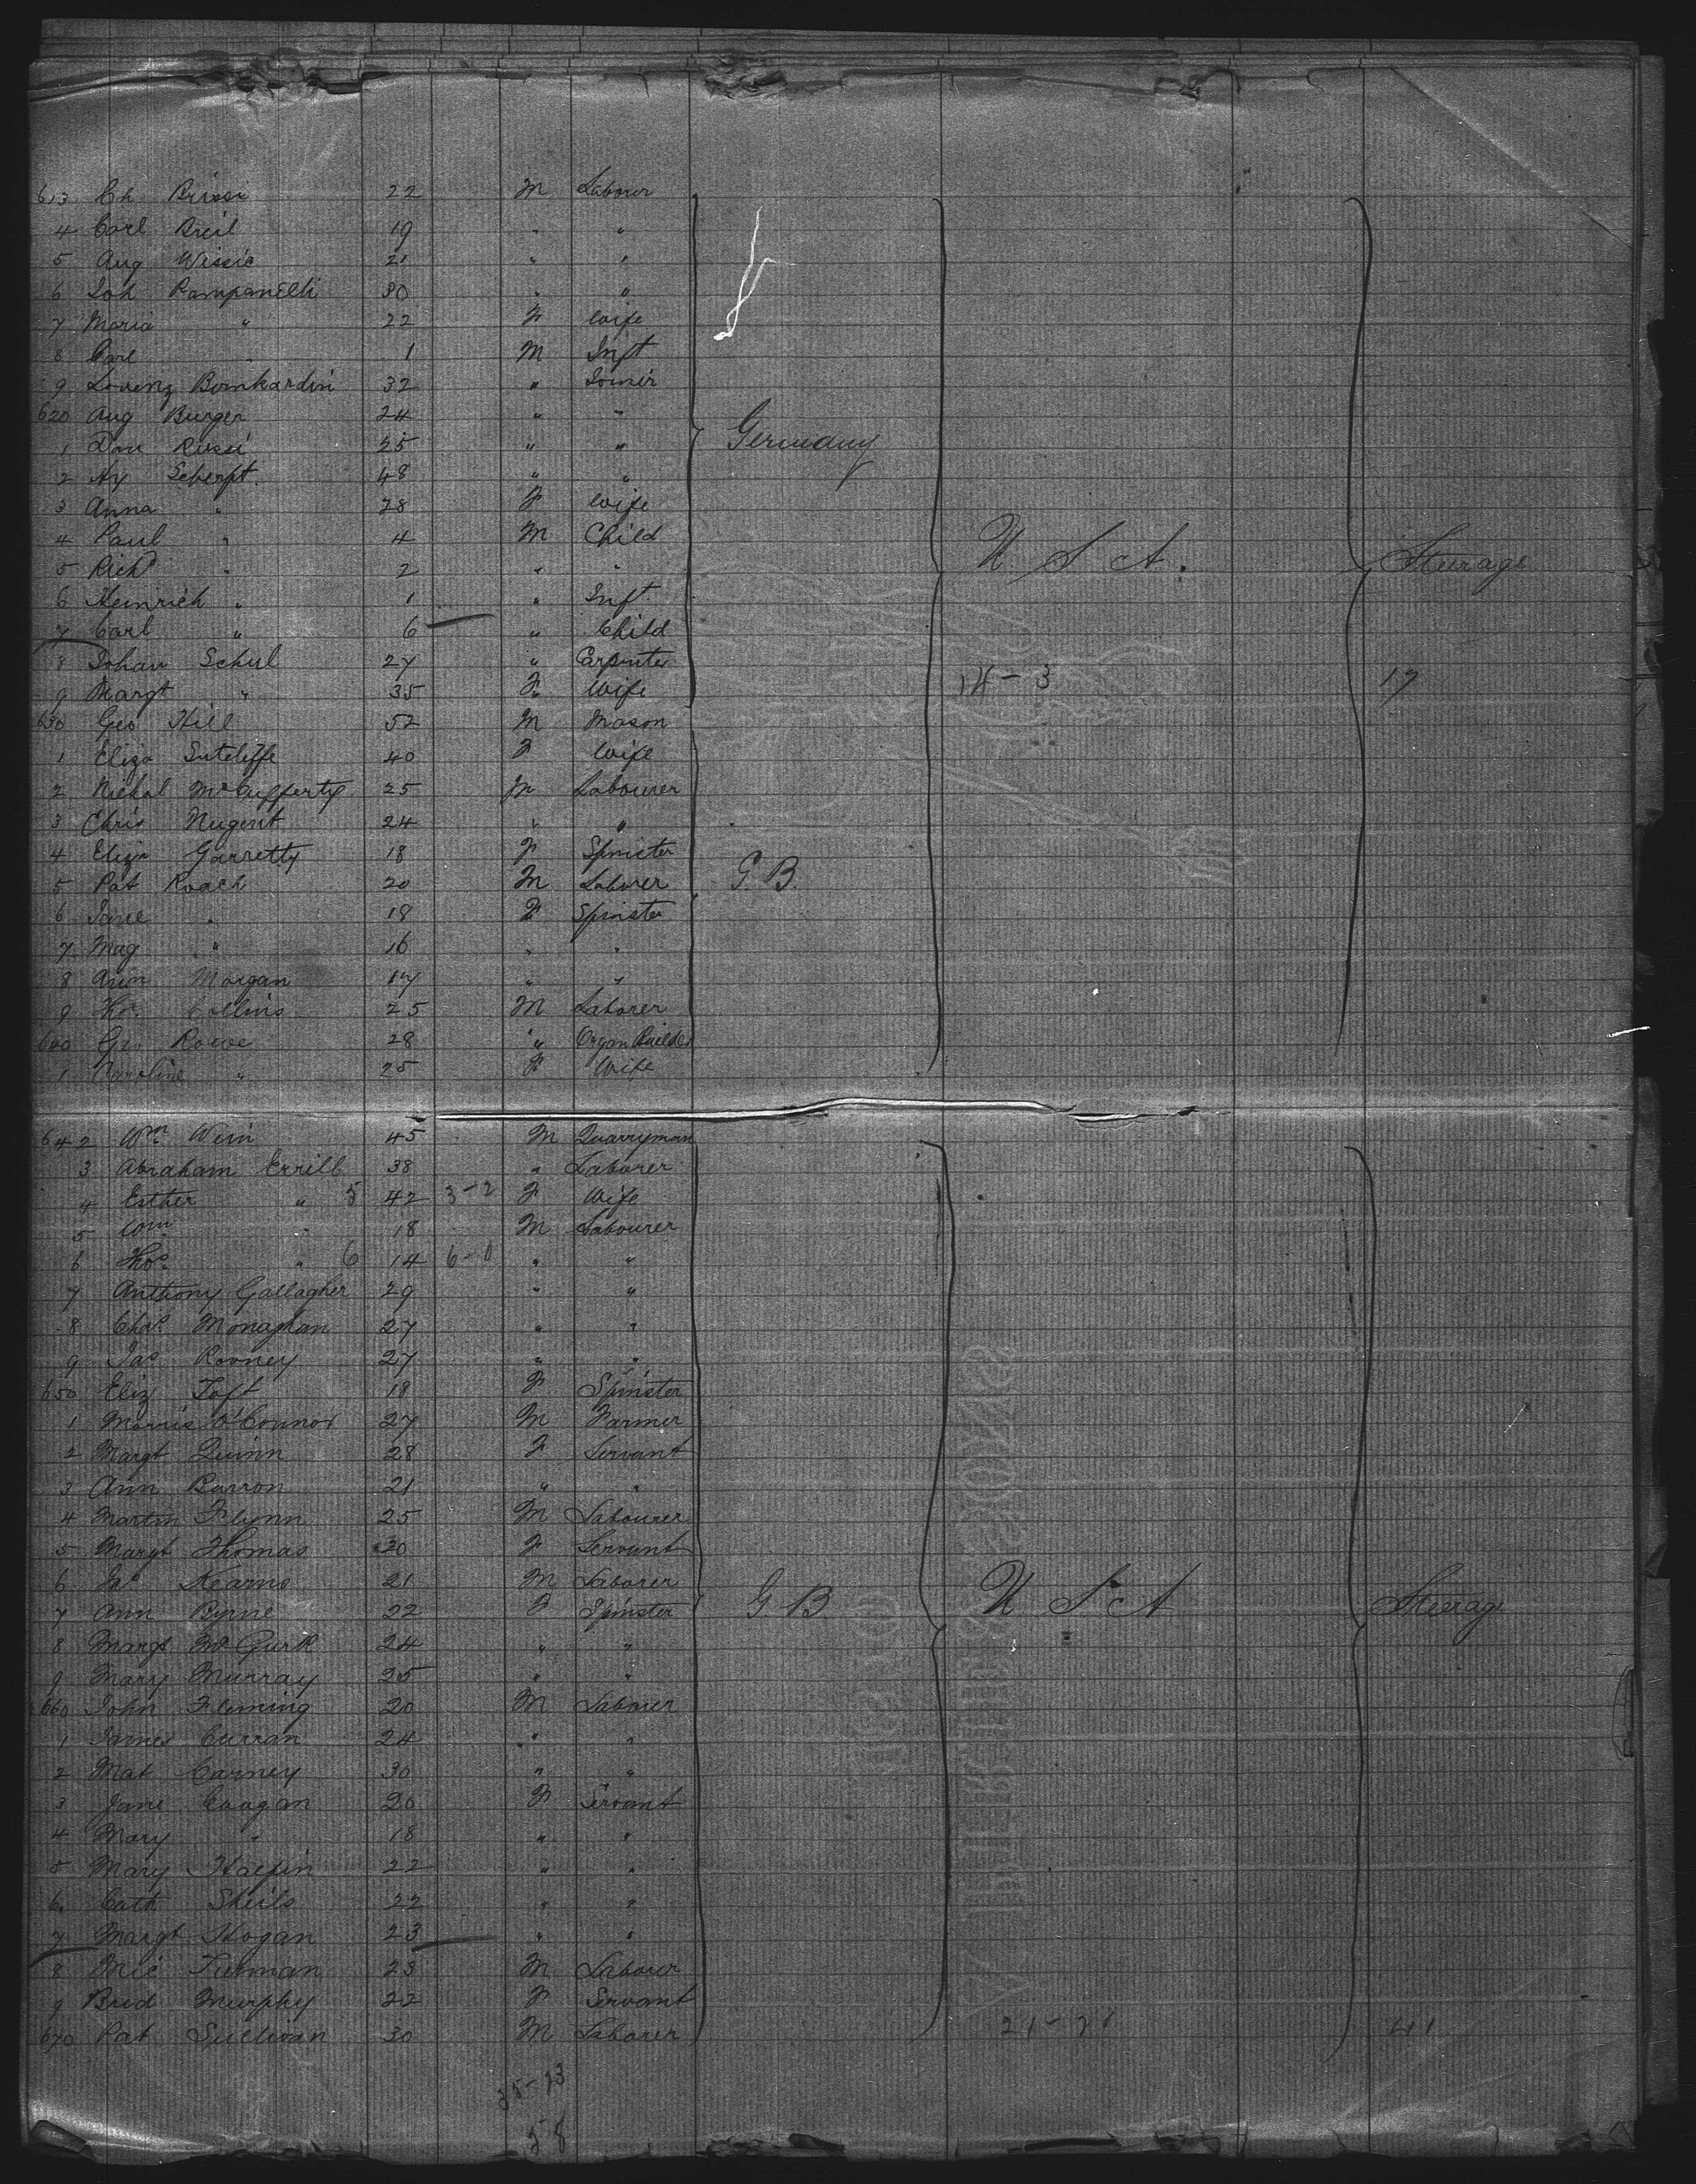 613 Ch Brissi 22 M Labour
4 Carl Breil 19 " "
5 Aug Wissie 21 " "
6 Joh Pampanelli 30 " "
7 Maria " 22 F Wife
8 Carl " 1 M Inft
9 Lorenz Bernhardin 32 " Joiner
620 Aug Burger 24 " "
1 Dom Russi 25 " " Germany
2 Ax Scherpt 48 " "
3 Anna " 28 F Wife
4 Paul " 4 M Child U. S. A. Steerage
5 Richd " 2 " "
6 Heinrich " 1 " Inft
7 Carl " 6 " Child
8 Johan Schul 27 " Carpenter
9 Margt " 35 F Wife 14-3 17
630 Geo Hill 52 M Mason
1 Eliza Sutcliffe 40 F Wife
2 Michal McCufferty 25 M Labourer
3 Chris Nugent 24 " "
4 Eliza Garretty 18 F Spinster
5 Pat Roach 20 M Laborer G. B.
6 Jane " 18 F Spinster
7 Mag " 16 " "
8 Ann Morgan 17 " "
9 Thos Collins 25 M Laborer
640 Geo Rowe 28 " Organ Builder
1 Caroline " 25 F Wife
642 Wm Wein 45 M Quarryman
3 Abraham Errill 38 " Laborer
4 Esther " 5 42 3-2 F Wife
5 Wm " 18 M Labourer
6 Thos " 6 14 6-0 " "
7 Anthony Gallagher 29 " "
8 Chas Monaghan 27 " "
9 Jas Rooney 27 " "
650 Eliz Taft 18 F Spinster
1 Morris O'Connor 27 M Farmer
2 Margt Quinn 28 F Servant
3 Ann Barron 21 " "
4 Martin Flynn 25 M Labourer
5 Margt Thomas 20 F Servant
6 Jas Kearns 21 M Laborer
7 Ann Byrne 22 F Spinster G B U S A Steerage
8 Margt McGurk 24 " "
9 Mary Murray 25 " "
660 John Fleming 20 M Laborer
1 James Curran 24 " "
2 Mat Carney 30 " "
3 Jane Coogan 20 F Servant
4 Mary " 18 " "
5 Mary Halpin 22 " "
6 Cath Sheils 22 " "
7 Margt Hogan 23 " "
8 Mic Turman 23 M Laborer
9 Brid Murphy 22 F Servant
670 Pat Sullivan 30 M Laborer 21-20 41
35-23
58